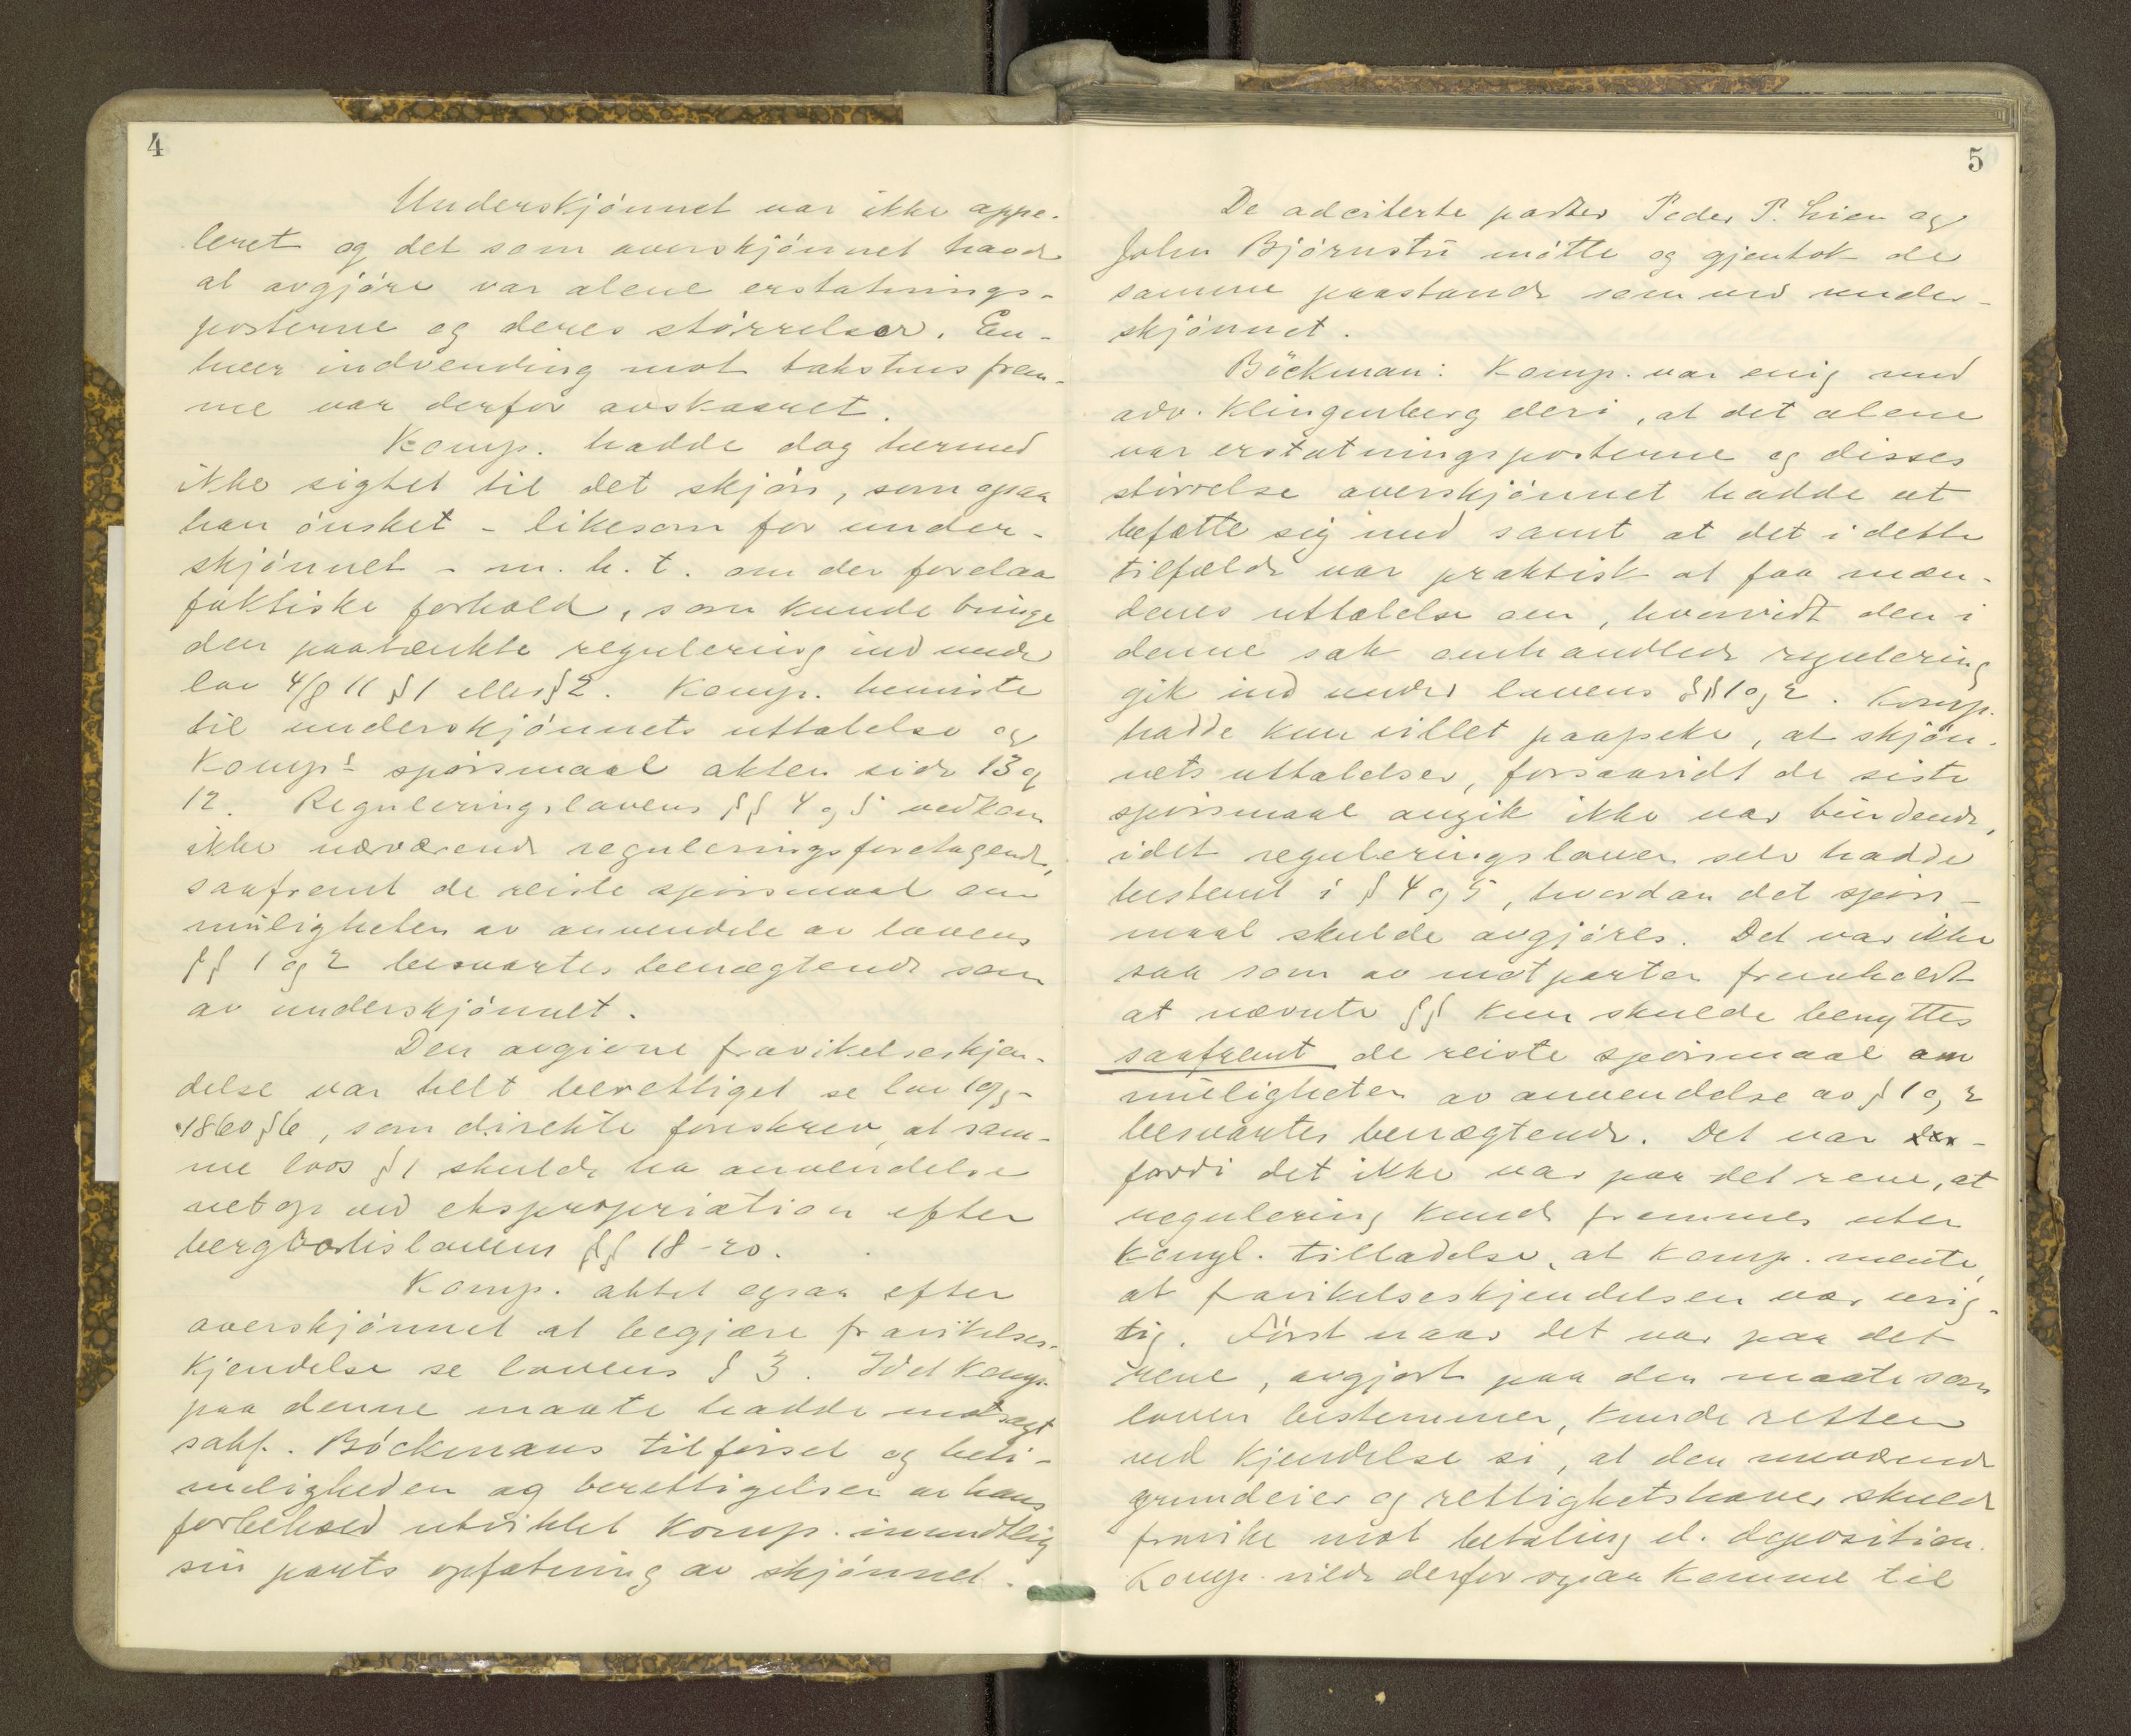 4
Underskjönnet var ikke appe-
leret og det som overskjönnet havde
at avgjöre var alene erstatnings-
posterne og deres störrelser. En-
hver indvending mot takstens frem-
me var derfor avskaaret.
Komp. hadde dog hermed
ikke sigtet til det skjön, som ogsaa
han önsket - likesom for under-
skjönnet - m. h. t. om der forelaa
faktiske forhold, som kunde bringe
den paatænkte regulering ind under
lov 4/8 11 § 1 eller § 2. Komp. henviste
til underskjönnets uttalelse og
Komps spörsmaal akten side 13 og
12. Reguleringslovens §§ 4 og 5 vedkom
ikke nærværende reguleringsforetagende,
saafremt de reiste spörsmaal om
muligheten av anvendele av lovens
§§ 1 og 2 besvartes benægtende som
av underskjönnet.
Den avgivne fravikelseskjen-
delse var helt berettiget se lov
1860 § 6, som direkte foreskrev, at sam-
me lovs § 1 skulde ha anvendelse
netop ved ekspropriation efter
bergverkslovens §§ 18-20.
Komp. aktet ogsaa efter
overskjönnet at begjære fravikelses-
kjendelse se lovens § 3. Idet Komp.
paa denne maate hadde motsagt
sakf. Böckmans tilförsel og beti-
meligheden og berettigelsen av hans
forbehold utviklet Komp. inmundtlig
sin parts opfatning av skjönnet.
5
De adciterte parter Peder P. Lien og
John Björnstu mötte og gjentok de
samme paastande som ved under-
skjönnet.
Böckman: Komp. var enig med
adv. Klingenberg deri, at det alene
var erstatningsposterne og disses
störrelse overskjönnet hadde at
befatte sig med samt at det i dette
tilfælde var praktisk at faa mæn-
denes uttalelse om, hvorvidt den i
denne sak omhandlede regulering
gik ind under lovens §§ 1 og 2. Komp.
hadde kun villet paapeke, at skjön-
nets uttalelser, forsaavidt de siste
spörsmaal angik ikke var bindende,
idet reguleringsloven selv hadde
bestemt i § 4 og 5, hvordan det spörs-
maal skulde avgjöres. Det var ikke
saa som av motparten fremholdt
at nævnte §§ kun skulde benyttes
saafremt de reiste spörsmaal om
muligheten av anvendelse av § 1 og 2
besvartes benægtende. Det var
fordi det ikke var paa det rene, at
regulering kunde fremmes uten
kongl. tilladelse, at Komp. mente,
at fravikelseskjendelsen var urig-
tig. Först naar det var paa det
rene, avgjort paa den maate som
loven bestemmer, kunde retten
ved kjendelse si, at den
grundeier og rettighetshaver skulde
fravike mot betaling el. deposition.
Komp. vilde derfor ogsaa komme til